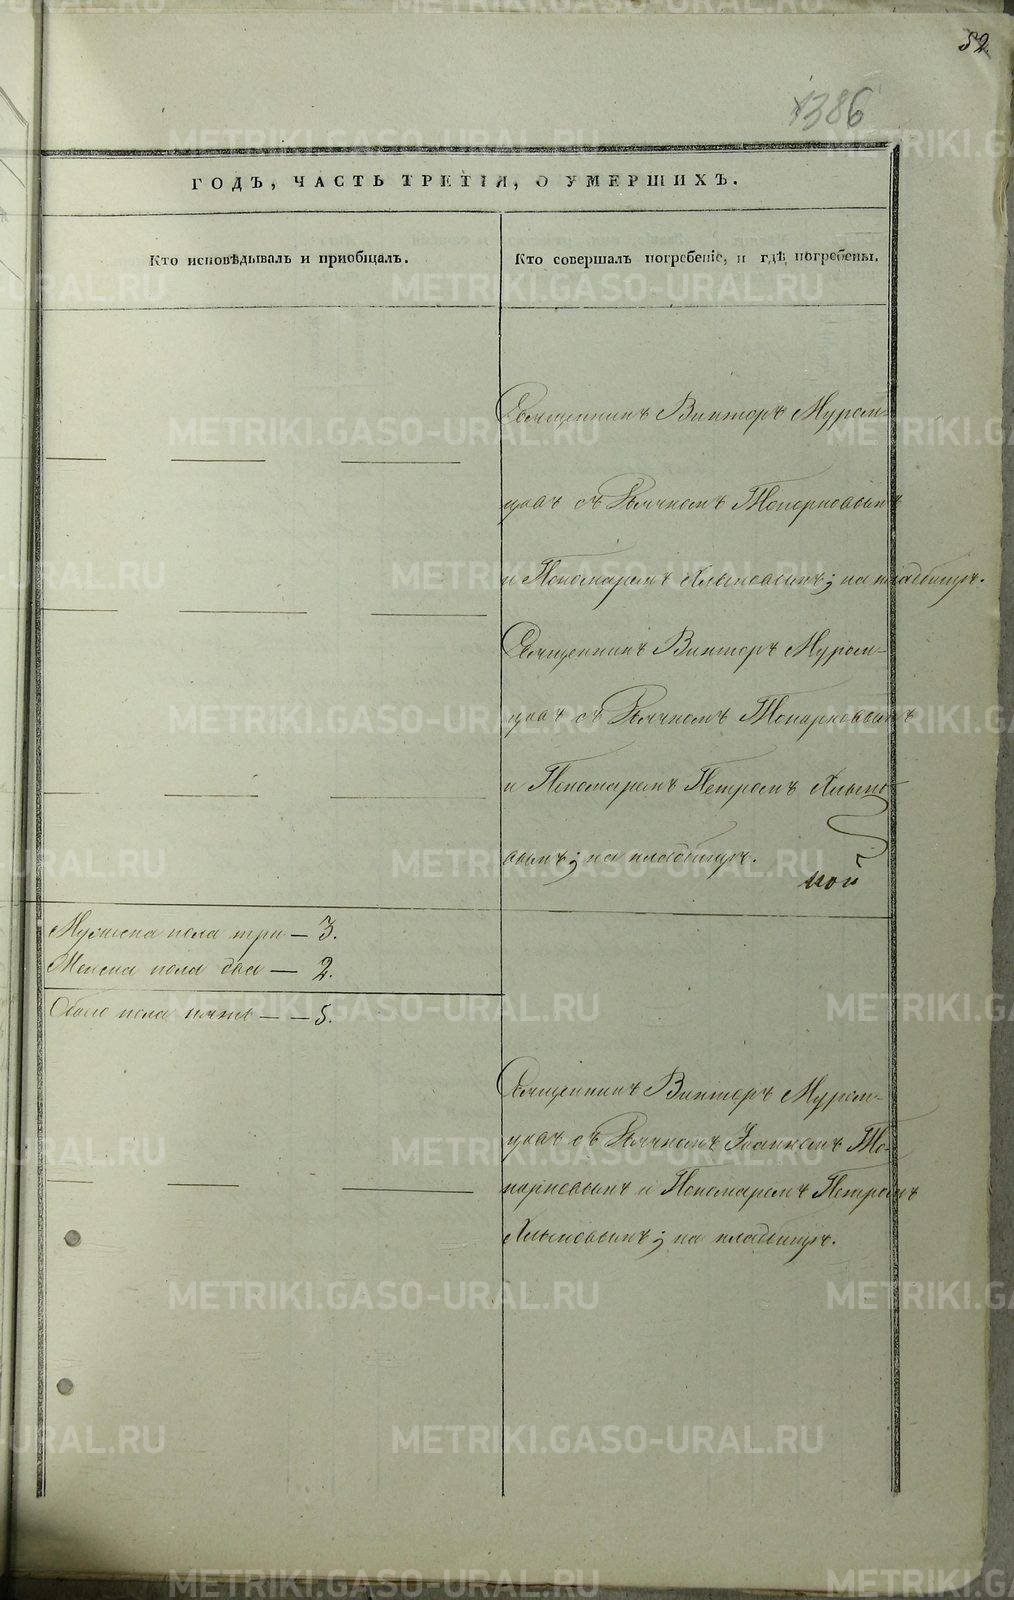 52.
1386
ГОДЪ, ЧАСТЬ ТРЕТІЯ, О УМЕРШИХЪ.
Кто исповѣдывалъ и пріобщалъ.
Кто совершалъ погребеніе, и гдѣ погребены.
Священникъ Викторъ Муром-
цовъ съ Дьячкомъ Топорковымъ
и Пономаремъ Хлыновымъ; на кладбищѣ.
Священникъ Викторъ Муром-
цовъ съ Дьячкомъ Топорковымъ
и Пономаремъ Петромъ Хлыно
вымъ; на кладбищѣ.
ной
Мужеска пола три — 3.
Женска пола два — 2.
Обоего пола пять — — 5.
Священникъ Викторъ Муром-
цовъ съ Дьячкомъ Іоанномъ То-
порковымъ и Пономаремъ Петромъ
Хлыновымъ; на кладбищѣ.
METRIKI.GASO-URAL.RU